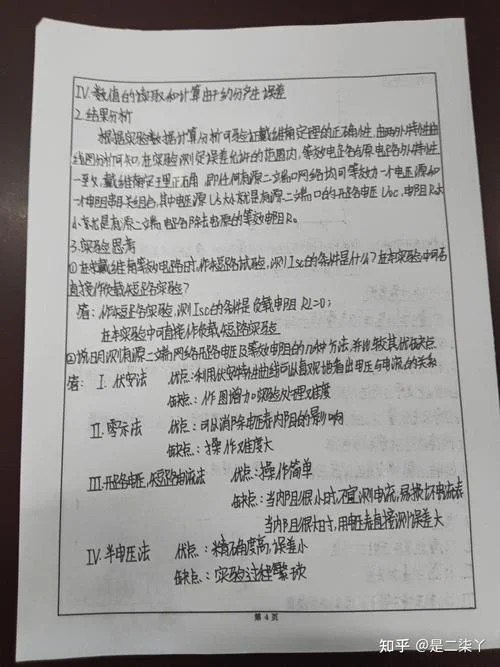 IV. 数值的读取和计算由于约分产生误差
2. 结果分析
根据实验数据计算分析可验证戴维南定理的正确性,由两外特性曲
线图分析可知,在实验测定误差允许的范围内,等效电路与原电路外特性
一致,戴维南定理正确,即任何有源二端口网络均可等效为一个电压源和
一个电阻串联组合,其中电压源Us大小就是有源二端口的开路电压Uoc,电阻R大
小等于是有源二端电路除去电源的等效电阻R。
3. 实验思考
①在求戴维南等效电路时,作短路试验,测Isc的条件是什么?在本实验中可否
直接作负载短路实验?
答:作短路实验,测Isc的条件是负载电阻RL=0;
在本实验中可直接作负载短路实验
②说明测有源二端网络开路电压及等效电阻的几种方法,并比较其优缺点
答: I. 伏安法 优点:利用伏安特性曲线可以直观地看出电压与电流的关系
缺点:作图增加实验处理难度
II. 零示法 优点:可以消除电压表内阻的影响
缺点:操作难度大
III. 开路电压,短路电流法 优点:操作简单
缺点:当内阻很小时,不宜测电流,易损坏电流表
当内阻很大时,用电压表直接测误差大
IV. 半电压法 优点:精确度高,误差小
缺点:实验过程繁琐
第 4 页
知乎 @是二柒丫